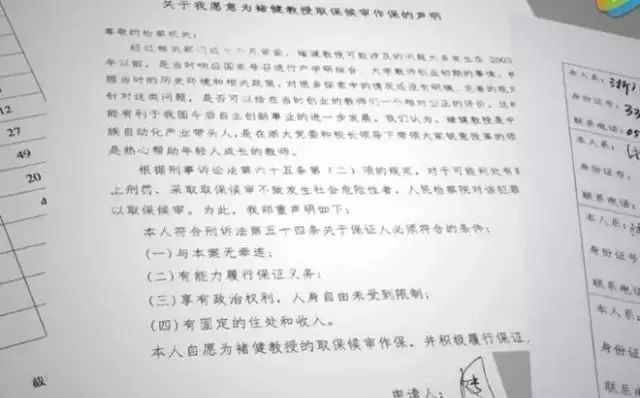 关于我愿意为褚健教授取保候审作保的声明
尊敬的检察机关：
经过相关部门近十个月审查，褚健教授可能涉及的问题大多发生在2003
年以前，是当时响应国家号召进行产学研结合、大学教师创业初期的事情，
据当时的历史环境和相关政策，对很多探索中的情况还没有明确、完善的规
针对这类问题，是否可以给在当时创业的教师们一个相对公正的评价，这
能有利于我国今后自主创新事业的进一步发展。我们认为，褚健教授是中
族自动化产业带头人，是在浙大党委和校长领导下带领大家锐意改革的
是热心帮助年轻人成长的教师。
根据刑事诉讼法第六十五条第（二）项的规定，对于可能判处有
上刑罚，采取取保候审不致发生社会危险性者，人民检察院对该犯罪
以取保候审。为此，我郑重声明如下：
本人符合刑诉法第五十四条关于保证人必须符合的条件：
（一）与本案无牵连；
（二）有能力履行保证义务；
（三）享有政治权利，人身自由未受到限制；
（四）有固定的住处和收入。
本人自愿为褚健教授的取保候审作保，并积极履行保证
申请人：
12
27
49
20
4
截
本人系：浙
身份证号：33
联系电话：05
本人系：
身份证号：
联系电话：
本人系：
身份证号
联系电话
本人系：
身份证
联系